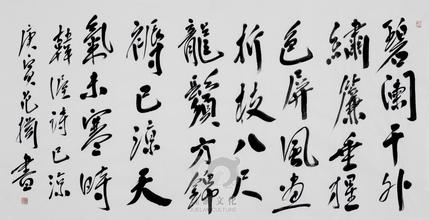 碧闌干外
繡簾垂猩
色屏風畫
折枝八尺
龍鬚方錦
褥已涼天
氣未寒時
韓偓詩已涼
庚寅書
文化
CULTURE